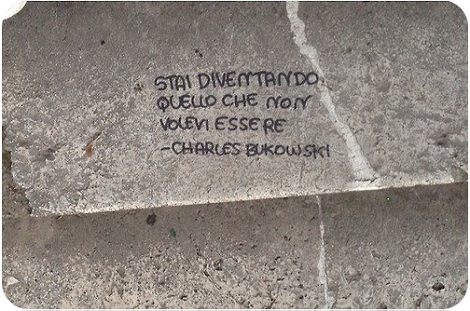 STAI DIVENTANDO
QUELLO CHE NON
VOLEVI ESSERE
-CHARLES BUKOWSKI